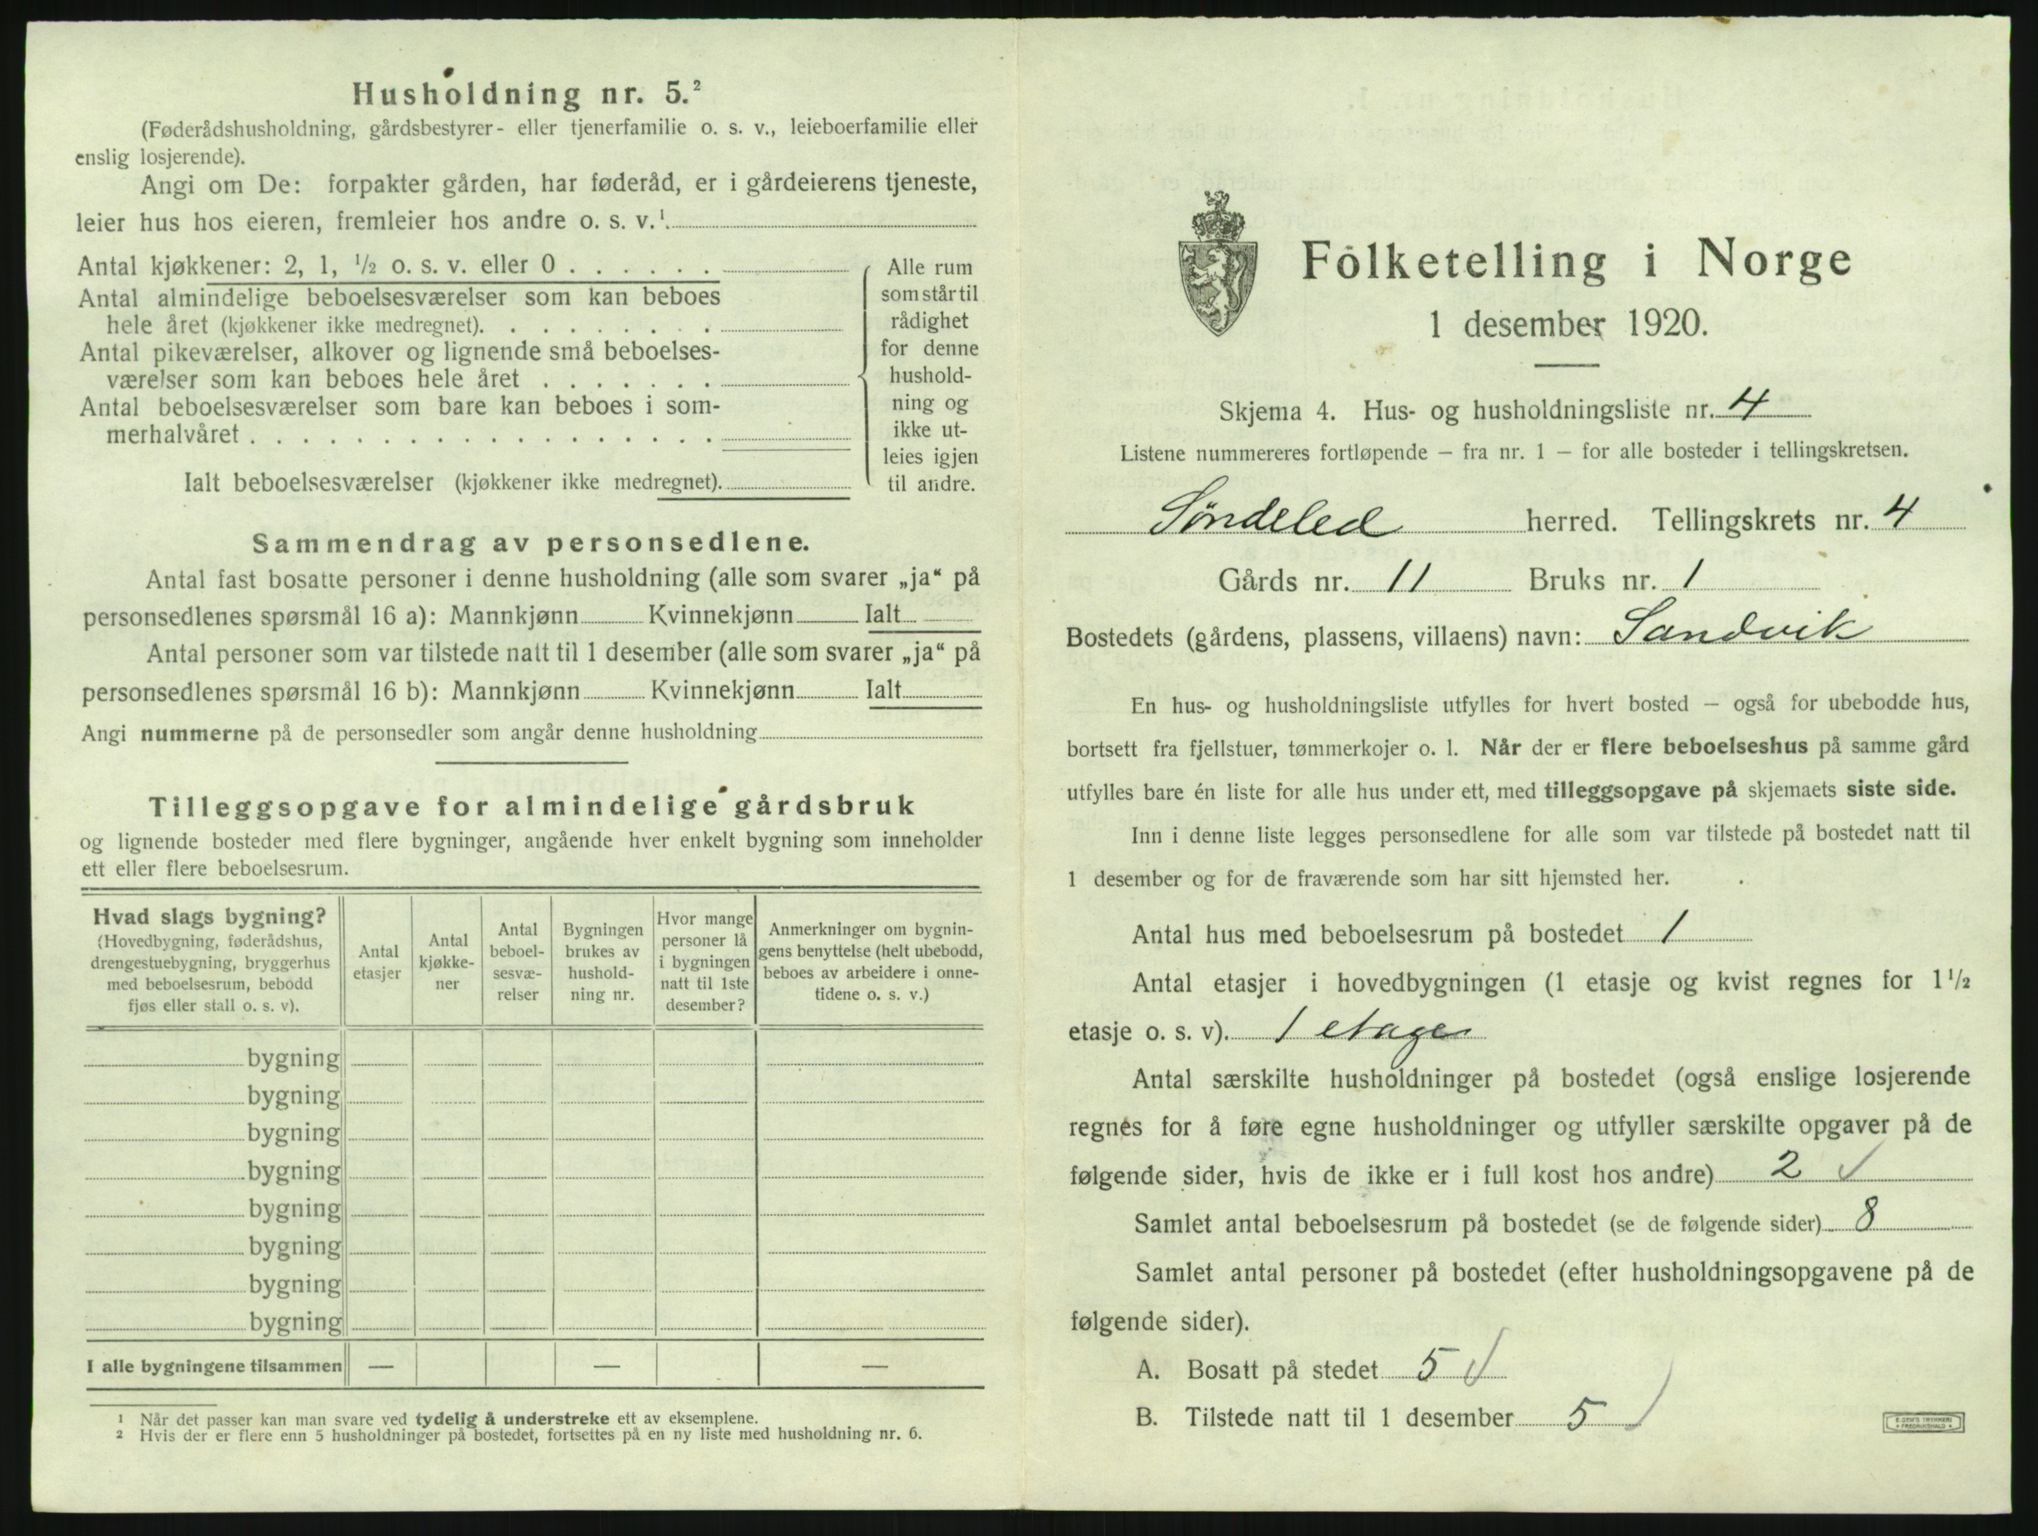 Husholdning nr. 5.²
(Føderådshusholdning, gårdsbestyrer- eller tjenerfamilie o. s. v., leieboerfamilie eller
enslig losjerende).
Angi om De: forpakter gården, har føderåd, er i gårdeierens tjeneste,
leier hus hos eieren, fremleier hos andre o. s. v.¹
Antal kjøkkener: 2, 1, ½ o. s. v. eller 0 . . . . . .
Antal almindelige beboelsesværelser som kan beboes
hele året (kjøkkener ikke medregnet). . . . . . . . .
Antal pikeværelser, alkover og lignende små beboelses-
værelser som kan beboes hele året . . . . . . .
Antal beboelsesværelser som bare kan beboes i som-
merhalvåret . . . . . . . . . . . . . . . . . .
Ialt beboelsesværelser (kjøkkener ikke medregnet).
Alle rum
som står til
rådighet
for denne
hushold-
ning og
ikke ut-
leies igjen
til andre.
Sammendrag av personsedlene.
Antal fast bosatte personer i denne husholdning (alle som svarer „ja“ på
personsedlenes spørsmål 16 a): Mannkjønn Kvinnekjønn Ialt
Antal personer som var tilstede natt til 1 desember (alle som svarer „ja“ på
personsedlenes spørsmål 16 b): Mannkjønn Kvinnekjønn Ialt
Angi nummerne på de personsedler som angår denne husholdning
Tilleggsopgave for almindelige gårdsbruk
og lignende bosteder med flere bygninger, angående hver enkelt bygning som inneholder
ett eller flere beboelsesrum.
Hvad slags bygning?
(Hovedbygning, føderådshus,
drengestuebygning, bryggerhus
med beboelsesrum, bebodd
fjøs eller stall o. s. v).
Antal
etasjer
Antal
kjøkke-
ner
Antal
beboel-
sesvæ-
relser
Bygningen
brukes av
hushold-
ning nr.
Hvor mange
personer lå
i bygningen
natt til 1ste
desember?
Anmerkninger om bygnin-
gens benyttelse (helt ubebodd,
beboes av arbeidere i onne-
tidene o. s. v.)
bygning
bygning
bygning
bygning
bygning
bygning
bygning
bygning
I alle bygningene tilsammen — — —
¹ Når det passer kan man svare ved tydelig å understreke ett av eksemplene.
² Hvis der er flere enn 5 husholdninger på bostedet, fortsettes på en ny liste med husholdning nr. 6.
Folketelling i Norge
1 desember 1920.
Skjema 4. Hus- og husholdningsliste nr. 4
Listene nummereres fortløpende – fra nr. 1 – for alle bosteder i tellingskretsen.
Søndeled herred. Tellingskrets nr. 4
Gårds nr. 11 Bruks nr. 1
Bostedets (gårdens, plassens, villaens) navn: Sandvik
En hus- og husholdningsliste utfylles for hvert bosted – også for ubebodde hus,
bortsett fra fjellstuer, tømmerkojer o. l. Når der er flere beboelseshus på samme gård
utfylles bare én liste for alle hus under ett, med tilleggsopgave på skjemaets siste side.
Inn i denne liste legges personsedlene for alle som var tilstede på bostedet natt til
1 desember og for de fraværende som har sitt hjemsted her.
Antal hus med beboelsesrum på bostedet 1
Antal etasjer i hovedbygningen (1 etasje og kvist regnes for 1½
etasje o. s. v). 1 etage
Antal særskilte husholdninger på bostedet (også enslige losjerende
regnes for å føre egne husholdninger og utfyller særskilte opgaver på de
følgende sider, hvis de ikke er i full kost hos andre) 2 √
Samlet antal beboelsesrum på bostedet (se de følgende sider) 8
Samlet antal personer på bostedet (efter husholdningsopgavene på de
følgende sider).
A. Bosatt på stedet 5 √
B. Tilstede natt til 1 desember 5 √